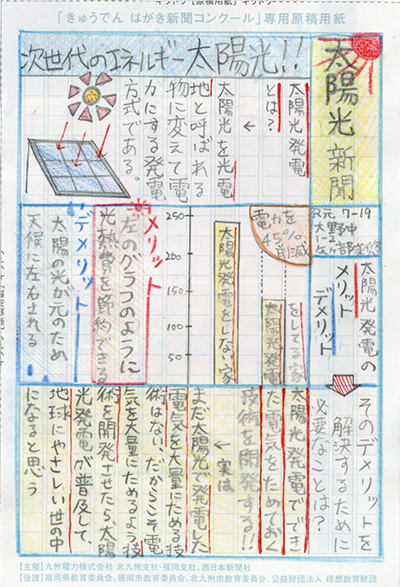 「きゅうでん はがき新聞コンクール」専用原稿用紙
太陽光新聞
R元 7-19
大野中
1-2
次世代のエネルギー太陽光!!
太陽光発電
とは?
←
太陽光を光電
地と呼ばれる
物に変えて電
力にする発電
方式である。
太陽光発電の
メリット
デメリット
電力を
45%
削減
250
200
150
100
50
をしてる家
太陽光発電
太陽光発電をしない家
メリット
左のグラフのように
光熱費を節約できる
デメリット
太陽の光が元のため
天候に左右される
そのデメリットを
解決するために
必要なことは?
太陽光発電ででき
た電気をためておく
技術を開発する!!
← 実は
まだ太陽光で発電した
電気を大量にためる技
術はない。だからこそ電
気を大量にためるよう技
術を開発させたら、太陽
光発電が普及して、
地球にやさしい世の中
になると思う
【主催】九州電力株式会社 北九州支社・福岡支社、西日本新聞社
【後援】福岡県教育委員会、福岡市教育委員会、北九州市教育委員会、公益財団法人 理想教育財団